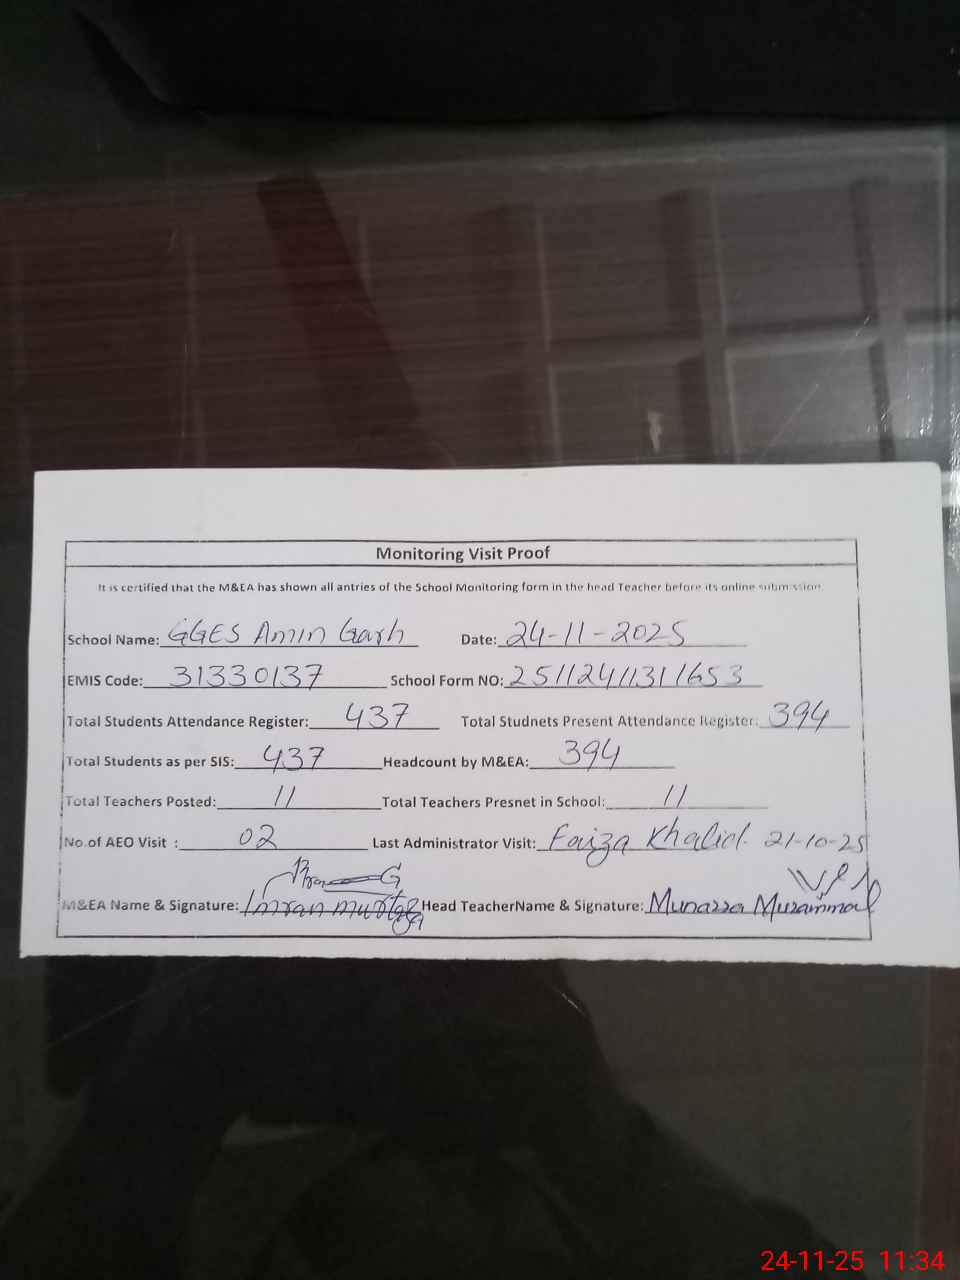 Monitoring Visit Proof
It is certified that the M&EA has shown all antries of the School Monitoring form in the head Teacher before its online submission
School Name: GGES Amin Garh Date: 24-11-2025
EMIS Code: 31330137 School Form NO: 25112411311653
Total Students Attendance Register: 437 Total Studnets Present Attendance Register: 394
Total Students as per SIS: 437 Headcount by M&EA: 394
Total Teachers Posted: 11 Total Teachers Presnet in School: 11
No.of AEO Visit : 02 Last Administrator Visit: Faiza Khalid. 21-10-25
M&EA Name & Signature: Imran murtaza Head TeacherName & Signature: Munazza Muzammal
24-11-25 11:34